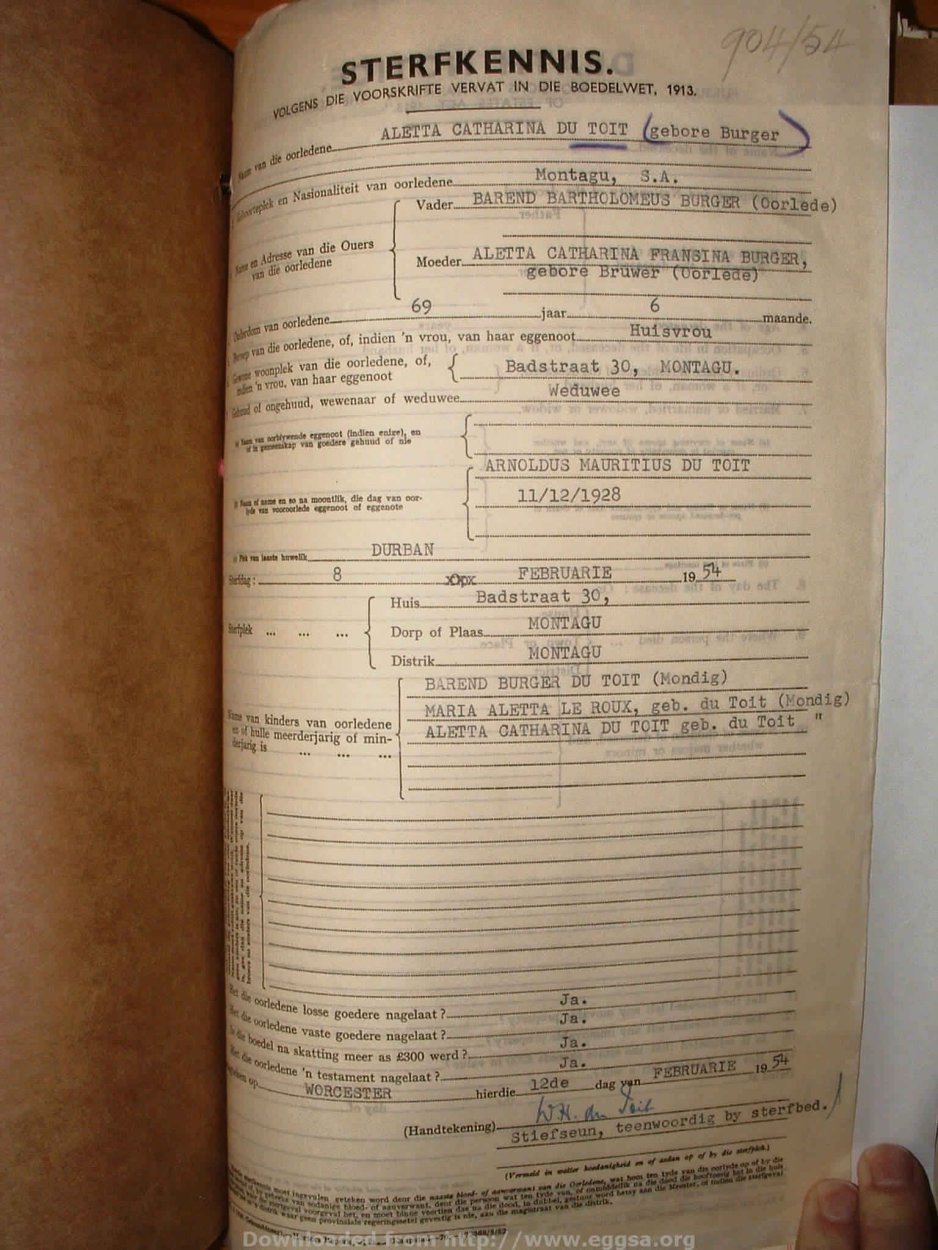 904/54
STERFKENNIS.
VOLGENS DIE VOORSKRIFTE VERVAT IN DIE BOEDELWET, 1913.
Naam van die oorledene ALETTA CATHARINA DU TOIT (gebore Burger)
Geboorteplek en Nasionaliteit van oorledene Montagu, S.A.
Name en Adresse van die Ouers van die oorledene
Vader BAREND BARTHOLOMEUS BURGER (Oorlede)
Moeder ALETTA CATHARINA FRANSINA BURGER,
gebore Bruwer (Oorlede)
Ouderdom van oorledene 69 jaar 6 maande.
Beroep van die oorledene, of, indien 'n vrou, van haar eggenoot Huisvrou
Gewone woonplek van die oorledene, of,
indien 'n vrou, van haar eggenoot
Badstraat 30, MONTAGU.
Gehuud of ongehuud, wewenaar of weduwee Weduwee
(a) Naam van oorblywende eggenoot (indien enige), en
of in gemeenskap van goedere gehuud of nie
(b) Naam of name en so na moontlik, die dag van oor-
lyde van vooroorlede eggenoot of eggenote
ARNOLDUS MAURITIUS DU TOIT
11/12/1928
(c) Plek van laaste huwelik DURBAN
Sterfdag: 8 FEBRUARIE 1954
Sterfplek ... ... ...
Huis Badstraat 30,
Dorp of Plaas MONTAGU
Distrik MONTAGU
Name van kinders van oorledene
en of hulle meerderjarig of min-
derjarig is ... ... ...
BAREND BURGER DU TOIT (Mondig)
MARIA ALETTA LE ROUX, geb. du Toit (Mondig)
ALETTA CATHARINA DU TOIT geb. du Toit "
Het die oorledene losse goedere nagelaat? Ja.
Het die oorledene vaste goedere nagelaat? Ja.
Is die boedel na skatting meer as £300 werd? Ja.
Het die oorledene 'n testament nagelaat? Ja.
Gegeven op WORCESTER hierdie 12de dag van FEBRUARIE 1954
(Handtekening) W.H. du Toit
Stiefseun, teenwoordig by sterfbed.
(Vermeld in watter hoedanigheid en of aedan op of by die sterfplek.)
Downloaded from http://www.eggsa.org